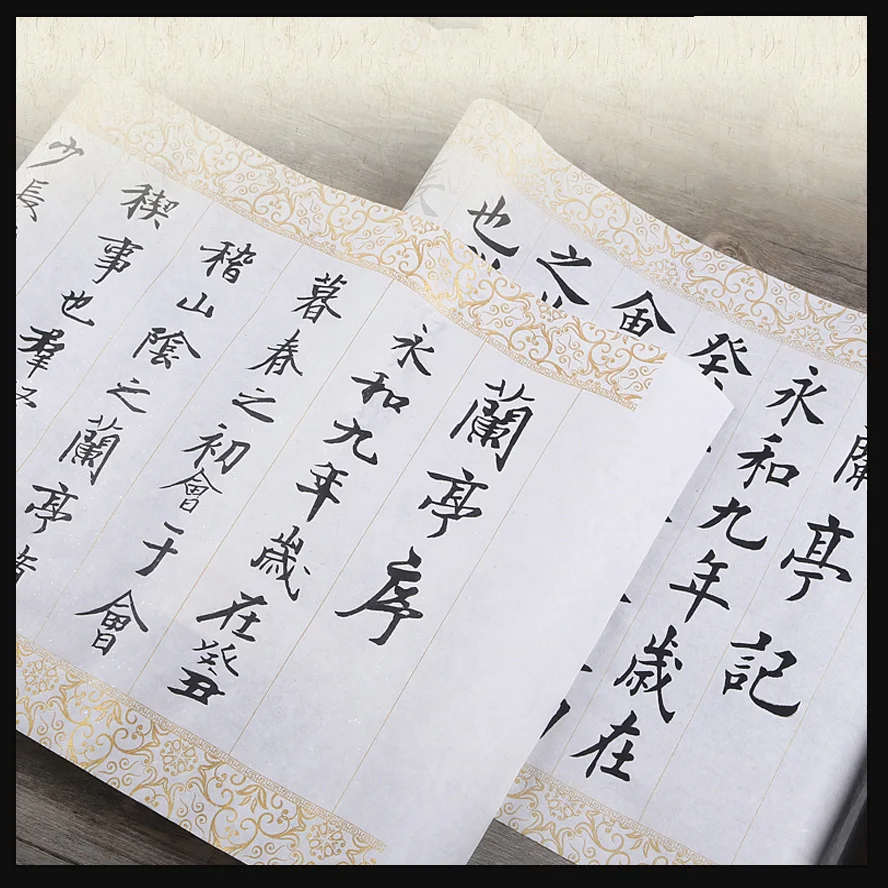 蘭亭序
永和九年歲在癸丑
暮春之初會于會
稽山陰之蘭亭
稧事也羣
少長
亭記
永和九年歲在
癸
之
也